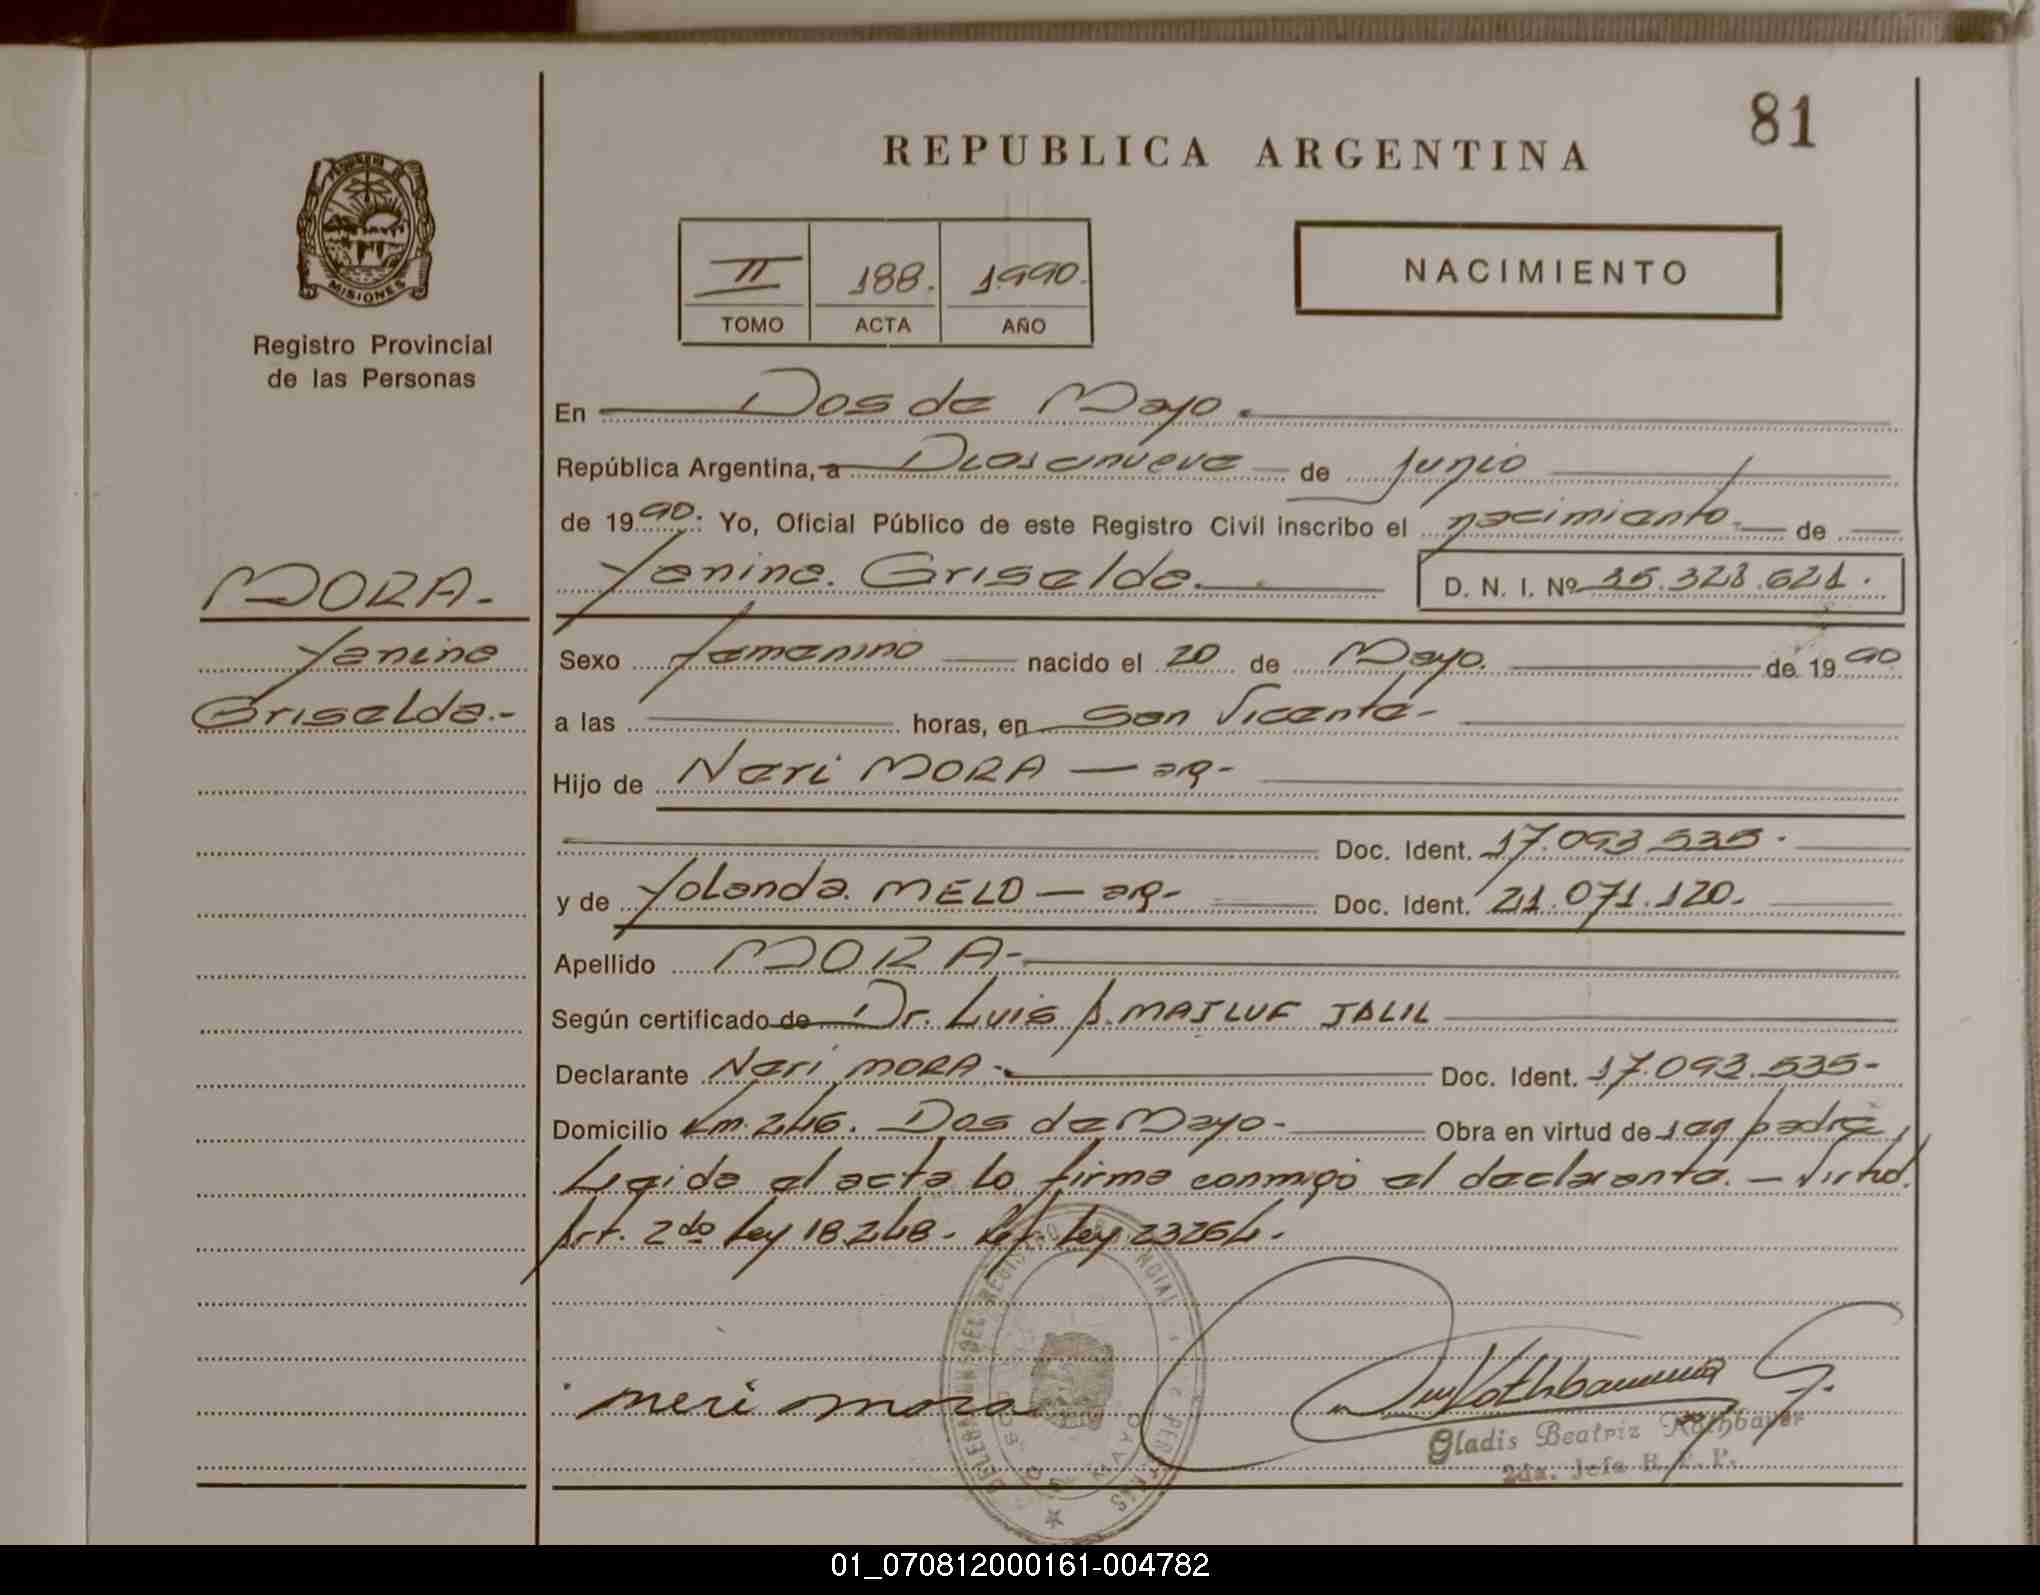 81
REPUBLICA ARGENTINA
MISIONES
Registro Provincial
de las Personas
II 188. 1.990.
TOMO ACTA AÑO
NACIMIENTO
En Dos de Mayo.
República Argentina, a Diescinueve de junio
de 1990: Yo, Oficial Público de este Registro Civil inscribo el nacimiento de
Yanina Griselda. D. N. I. Nº 35.323.621.
MORA.-
Yanina
Griselda.-
Sexo femenino nacido el 20 de Mayo. de 1990
a las horas, en San Vicente-
Hijo de Neri MORA — ar-
Doc. Ident. 17.093.535.
y de Yolanda MELO — ar- Doc. Ident. 21.071.120.
Apellido MORA-
Según certificado de Dr. Luis A. MAJLUF JALIL
Declarante Neri MORA- Doc. Ident. 17.093.535-
Domicilio Km. 246. Dos de Mayo- Obra en virtud de ser padre
Leida el acta lo firma conmigo el declarante. — Virtud.
Art. 2do Ley 18.248. Ref Ley 23264.
neri mora
Rothbauer G.
Gladis Beatriz Rothbauer
2da. Jefa R. P. P.
DOS DE MAYO
01_070812000161-004782